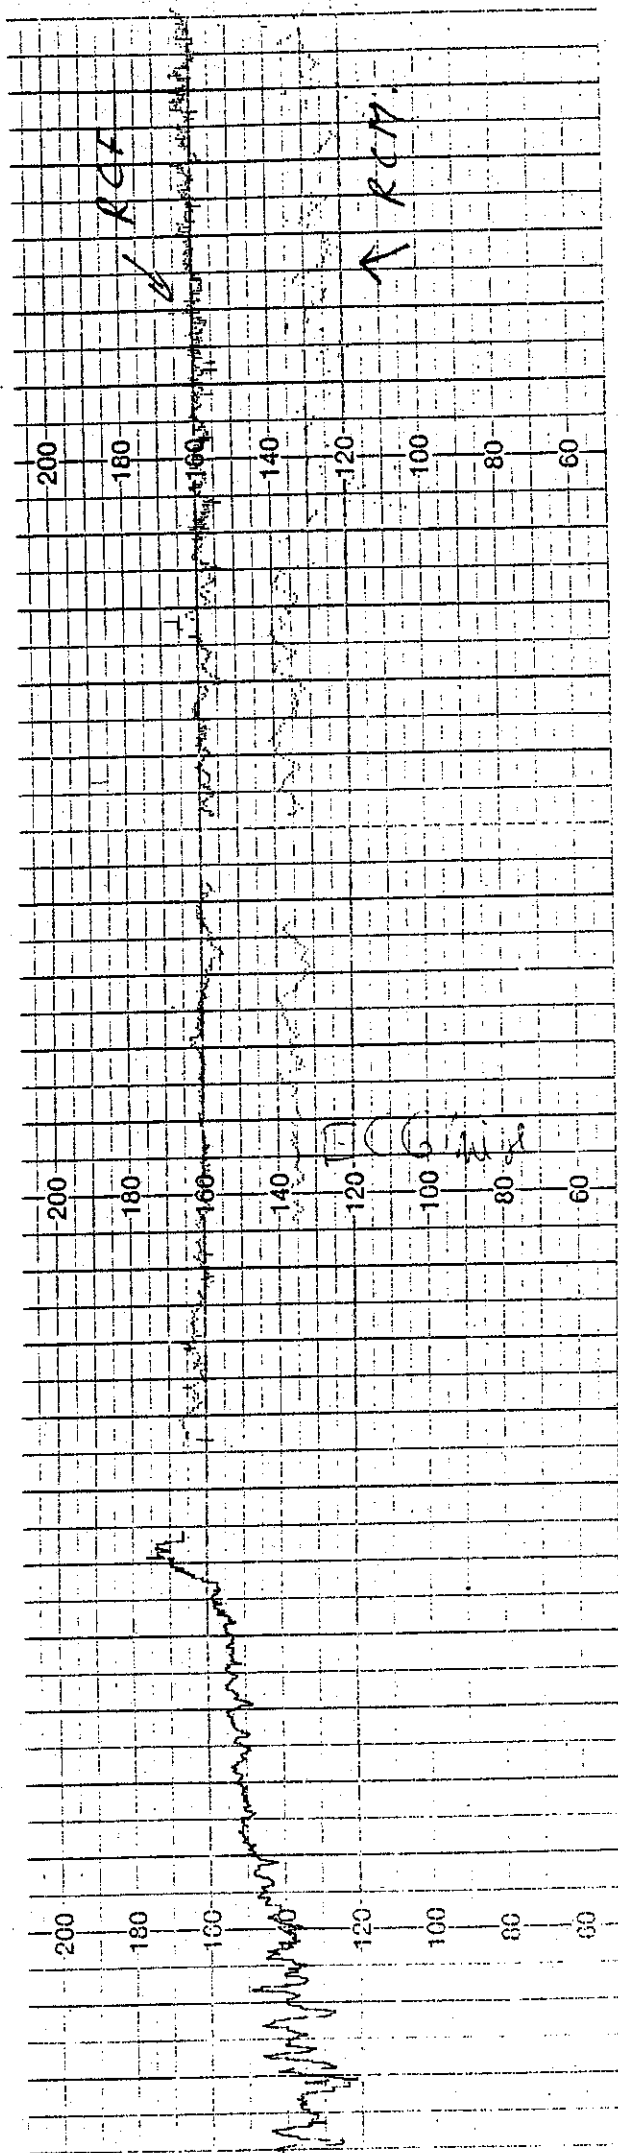 RCF
RCM.
200 180 160 140 120 100 80 60
200 180 160 140 120 100 80 60
200 180 160 140 120 100 80 60